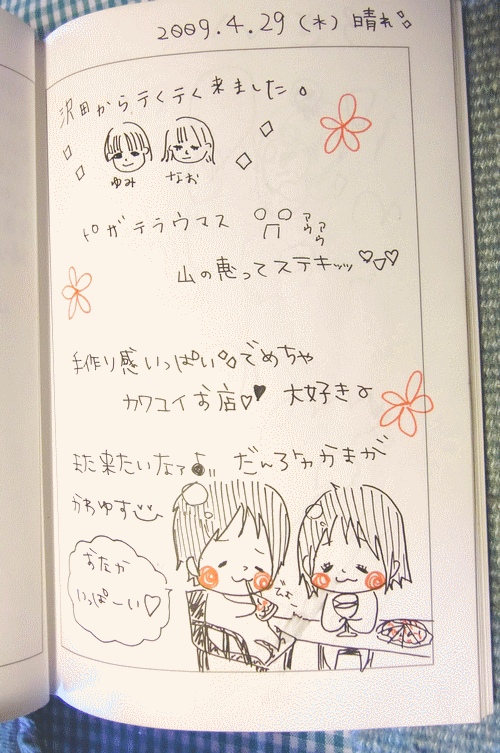 2009.4.29 (水) 晴れ
沢田からテくテく来ました。
ゆみ なお
ドガテラウマス アウ アウ
山の恵ってステキッッ♡▽♡
手作り感いっぱいでめちゃ
カワユイお店♡♥ 大好き
また来たいなァ♪ だんろ
かわゆす
おなか
いっぱーい♡